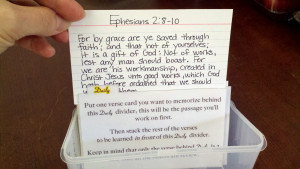 Ephesians 2:8-10
For by grace are ye saved through
faith; and that not of yourselves;
it is a gift of God: Not of works,
lest any man should boast. For
we are his workmanship, created in
Christ Jesus unto good works, which God
hath before ordained that we should
Daily
Put one verse card you want to memorize behind
this Daily divider; this will be the passage you'll
work on first.
Then stack the rest of the verses
to be learned in front of this Daily divider.
Keep in mind that only the verse behind Daily is a